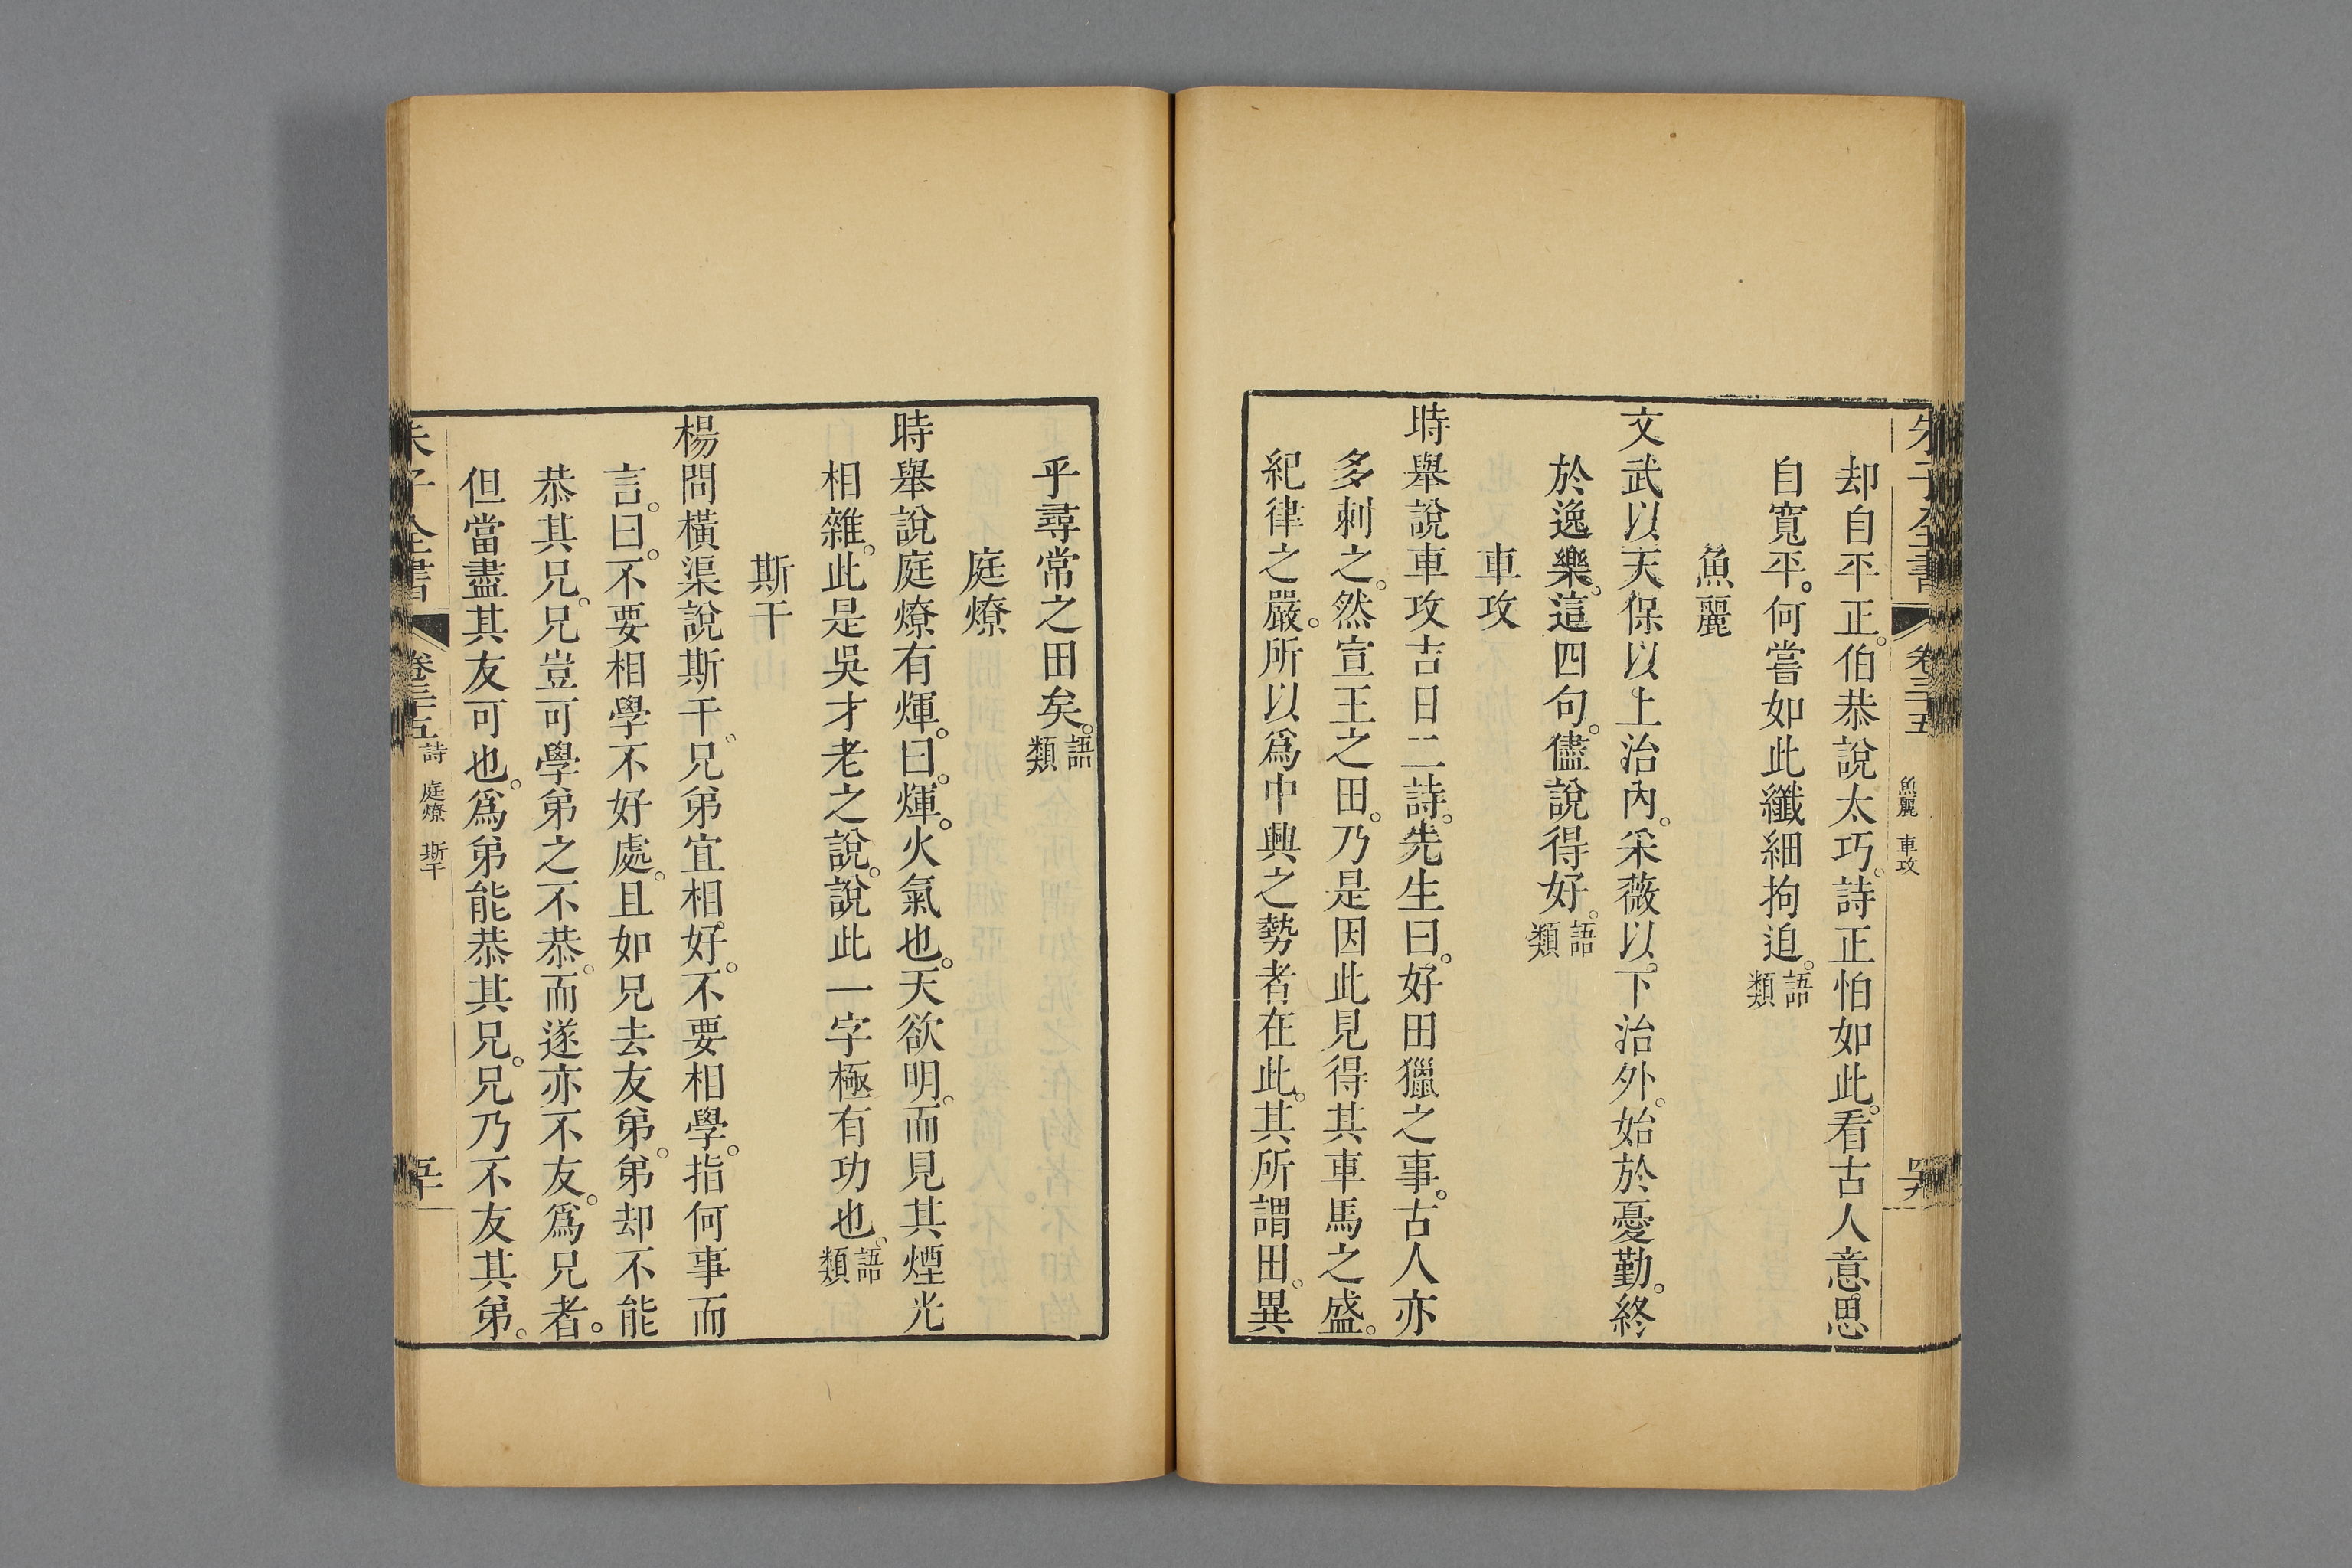 朱子全書 卷三十五 魚麗 車攻
却自平正。伯恭說太巧。詩正怕如此。看古人意思
自寬平。何嘗如此纖細拘迫。語類
魚麗
文武以天保以上治內。采薇以下治外。始於憂勤。終
於逸樂。這四句。儘說得好。語類
車攻
時舉說車攻吉日二詩。先生曰。好田獵之事。古人亦
多刺之。然宣王之田。乃是因此見得其車馬之盛。
紀律之嚴。所以爲中興之勢者在此。其所謂田。異
乎尋常之田矣。語類
庭燎
時舉說庭燎有煇。曰。煇。火氣也。天欲明。而見其煙光
相雜。此是吳才老之說。說此一字極有功也。語類
斯干
楊問橫渠說斯干。兄弟宜相好。不要相學。指何事而
言。曰。不要相學不好處。且如兄去友弟。弟却不能
恭其兄。兄豈可學弟之不恭。而遂亦不友。爲兄者。
但當盡其友可也。爲弟能恭其兄。兄乃不友其弟。
朱子全書 卷三十五 詩 庭燎 斯干